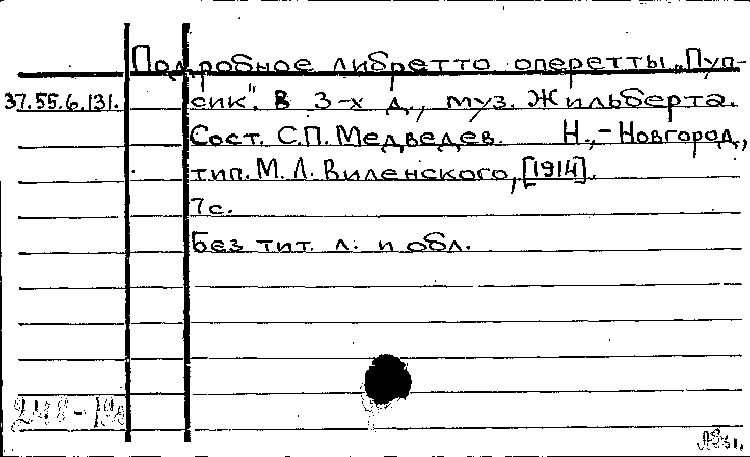 Подробное либретто оперетты „Пуп-
37.55.6.131. сик“. В 3-х д., муз. Жильберта.
Сост. С.П. Медведев. Н.,-Новгород,
тип. М. Л. Виленского, [1914].
7с.
Без тит. л. и обл.